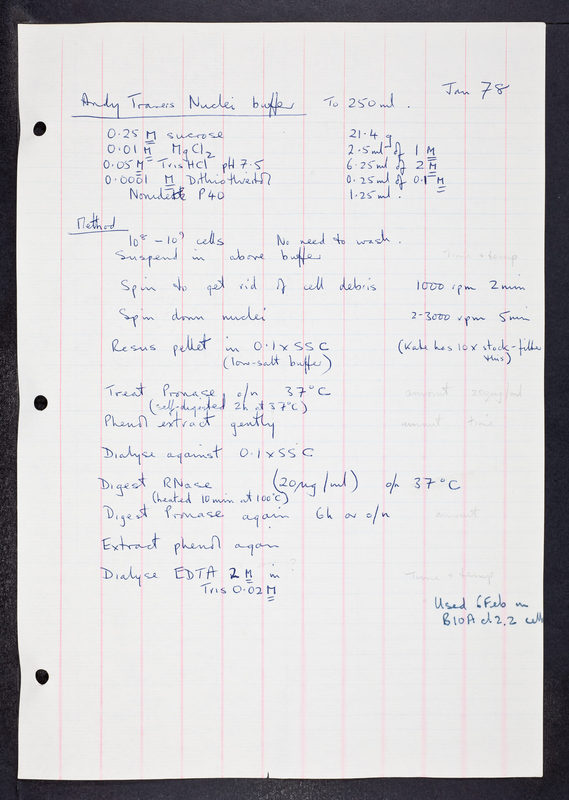 Jan 78
Andy Travers Nuclei buffer To 250ml.
0.25 M sucrose 21.4 g
0.01 M MgCl2 2.5ml of 1 M
0.05 M Tris HCl pH 7.5 6.25ml of 2 M
0.0001 M Dithiothreitol 0.25ml of 0.1 M
Nonidet P40 1.25ml.
Method
10⁸ - 10⁹ cells No need to wash.
Suspend in above buffer time + temp
Spin to get rid of cell debris 1000 rpm 2min
Spin down nuclei 2-3000 rpm 5min
Resus pellet in 0.1 x SSC (Kate has 10x stock - filter
(low-salt buffer) this)
Treat Pronase o/n 37°C amount 20µg/ml
(self-digested 2h at 37°C)
Phenol extract gently amount time
Dialyse against 0.1 x SSC
Digest RNase (20µg/ml) o/n 37°C
(heated 10min at 100°C)
Digest Pronase again 6h or o/n amount
Extract phenol again
Dialyse EDTA 2 M in ?
Tris 0.02 M time + temp
Used 6 Feb on
B10A cl.2.2 cells